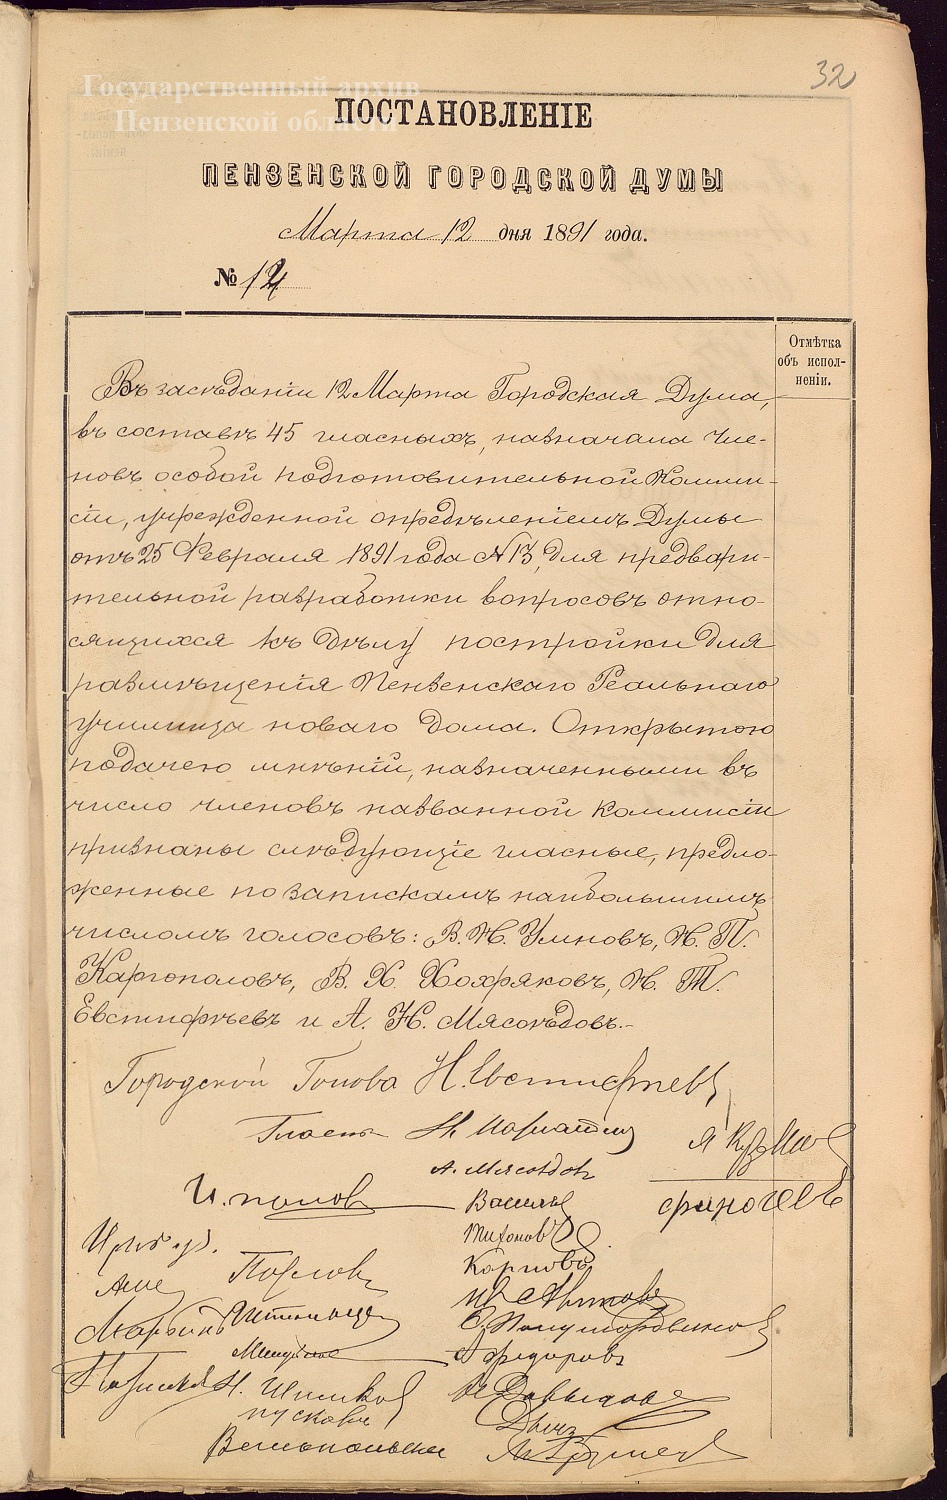 32
Государственный архив
Пензенской области
ПОСТАНОВЛЕНІЕ
ПЕНЗЕНСКОЙ ГОРОДСКОЙ ДУМЫ
Марта 12 дня 1891 года.
№ 14
Отмѣтка
объ испол-
неніи.
Въ засѣданіи 12 Марта Городская Дума,
въ составѣ 45 гласныхъ, назначала чле-
новъ особой подготовительной Комми-
сіи, учрежденной опредѣленіемъ Думы
отъ 25 Февраля 1891 года № 13, для предвари-
тельной разработки вопросовъ отно-
сящихся къ дѣлу постройки для
размѣщенія Пензенскаго Реальнаго
Училища новаго дома. Открытою
подачею мнѣній, назначенными въ
число членовъ названной коммисіи
признаны слѣдующіе гласные, предло-
женные по запискамъ наибольшимъ
числомъ голосовъ: В. Н. Умновъ, Н. П.
Каргополовъ, В. Х. Хохряковъ, Н. Т.
Евстифѣевъ и А. Н. Мясоѣдовъ.-
Городской Голова Н. Евстифѣевъ
А. Мясоѣдовъ
И. Попов
Васильев
Финогеев
Тихоновъ
Карповъ
Федоровъ
Н. Давыдовъ